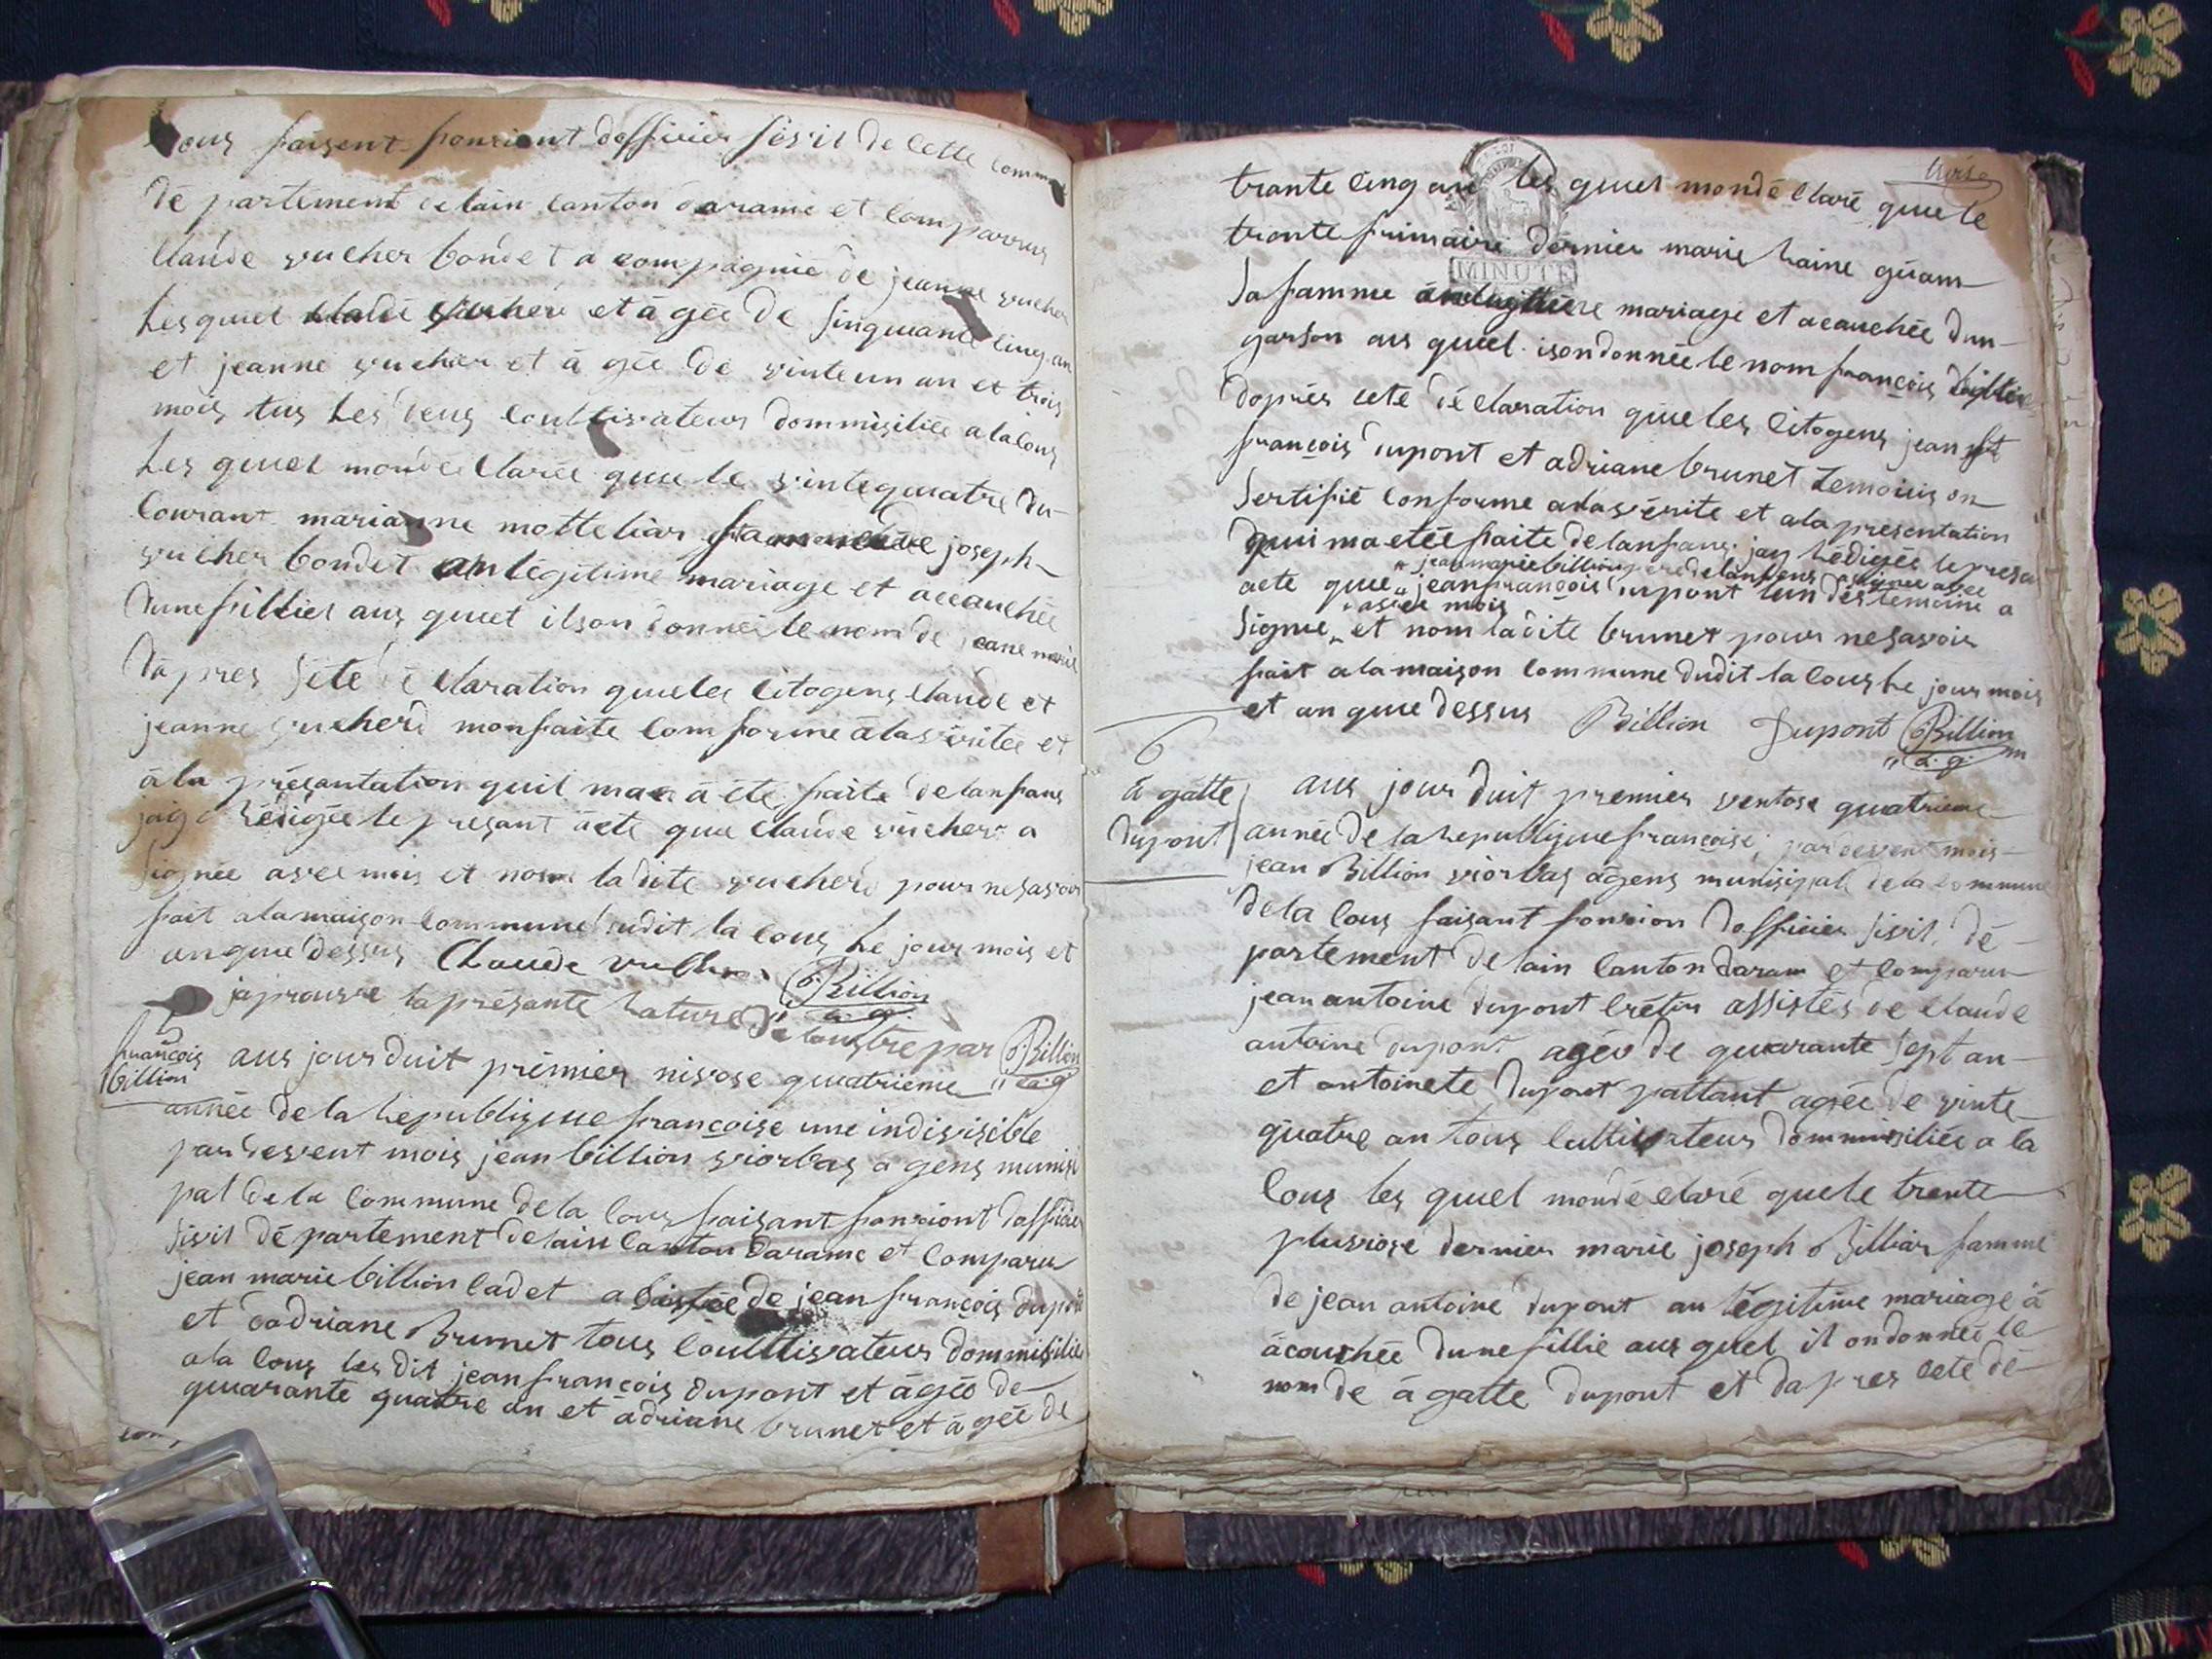 faisent fonsiont dofficier sisvil de cette
dé partement delain canton darame et comparrus
claude vucher bondet a compagnié de jeanne vucher
les quuel et à gée de sinquuante cinq an
et jeanne vucher et à gée de vinte un an et trois
mois tus les deus coultisvateur dommisiliée a la lous
les quuel mondé clarée quue le vintequuatre du
courant marianne mottelias joseph
vucher bondet an legitime mariage et accauchée
dune fillies aus quuel ilson donnée le nom de jeane marie
dà pres sete dé claration quueles citogens claude et
jeanne vucherd monfaite comforme à lasvéritée et
à la présantation quil à été faite delanfans
jaig rédigée le presant àcte quue claude vucher a
signée avec mois et nom la dite vucherd pour nesavoir
fait alamaison commune dudit la lous le jour mois et
an quue dessus Claude vucher Billion
a.g.
japrousve la présante rature de laustre par Billion
a.g.
5
françois
billion
aus jour duit prémier nisvose quuatriéme
année de la republique françoise une indisvisible
par devent mois jean billion viorbas a gens munisi
pal de la commune de la lous faisant fonsiont dofficier
sisvil dé partement delain canton darame et comparu
jean marie billion cadet a sistée de jean françois dupont
et dadriane Brunet tous coultisvateur dommisiliée
ala lous les dit jean françois dupont et àgéo de
quuarante quuatre an et adriane brunet et à gée de
trois
trante cinq an les quuel mondé claré quue le
trante frimaire dérnier marie
sa famme mariage et acauchée dun
garson aus quuel isondonnée le nom françois
daprés cete dé claration quue les citogens jean
françois dupont et adriane brunet temoins on
sertifié conforme alasvérite et ala présentation
quui ma etée faite delanfans jay rédigée le presan
jean marie billion père de lanfans a signée avec
acte quue jean françois dupont lun des temoins a
avec mois
signue et nom ladite brunet pour nesavoir
fait a la maison commune dudit la lous le jour mois
et an quue dessus Billion Dupont Billion
a.g.
MINUTE
6
à gatte
dupont
aus jour duit premier ventose quuatrieme
année de la republique françoise, par devent mois
jean Billion viorbas àgens munisipale de la commune
de la lous faisant fonsion dofficier sisvil, dé
partement delain canton daram et comparu
jean antoine dupont crétin assistés de claude
antoine dupont agéo de quuarante sept an
et antoinete dupont pattant agée de vinte
quuatre an tous cultivateur dommisiliée a la
lous les quuel mondé claré que le trente
pluviose dernier marie joseph Billion famme
de jean antoine dupont an légitime mariage à
àcouchée dune fillie aus quel il ondonnée le
nom de à gatte dupont et da pres cete dé